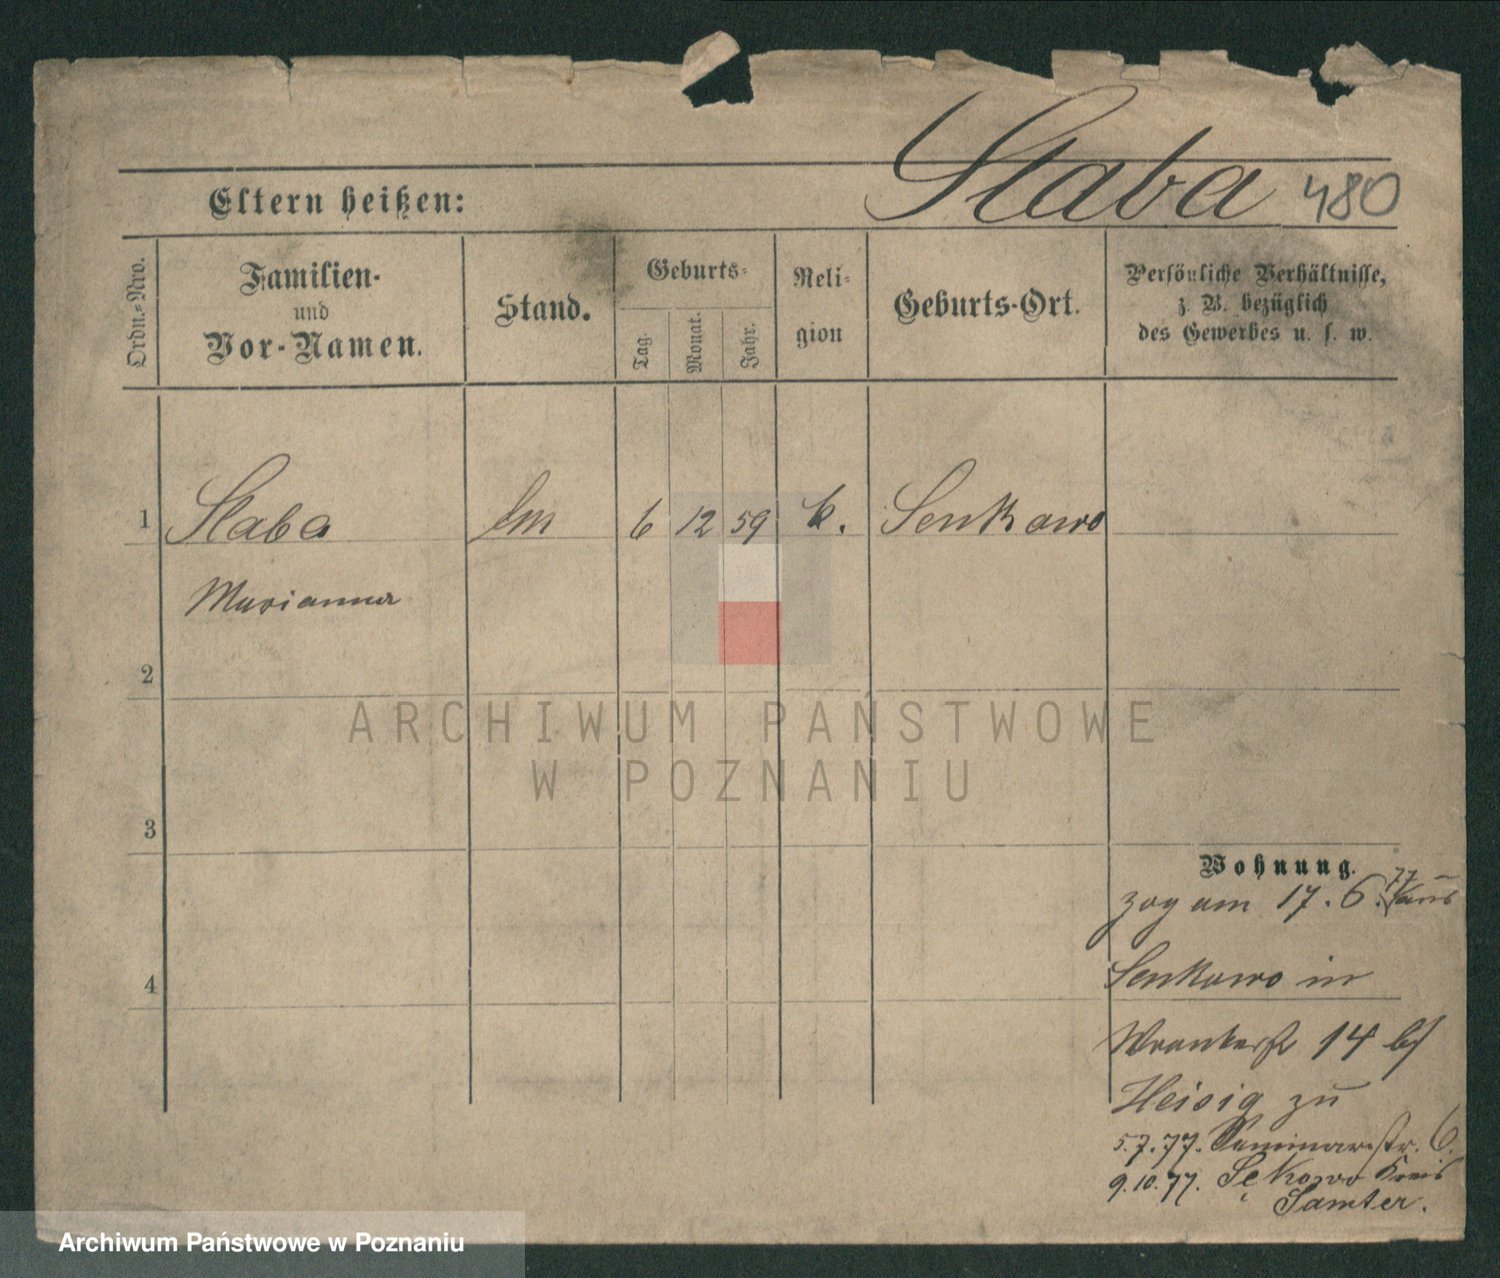 Slaba 480
Eltern heißen:
Ordn.-Nro.
Familien-
und
Vor-Namen.
Stand.
Geburts-
Tag.
Monat.
Jahr.
Reli-
gion
Geburts-Ort.
Persönliche Verhältnisse,
z. B. bezüglich
des Gewerbes u. s. w.
1 Slaba 6 12 59 k. Senkowo
Marianna
2
3
4
Wohnung.
zog am 17. 6. 77 aus
Senkowo in
14 b/
Heisig zu
5.7.77. Seminarstr. 6.
9.10.77. Sękowo Kreis
Samter.
ARCHIWUM PAŃSTWOWE
W POZNANIU
Archiwum Państwowe w Poznaniu